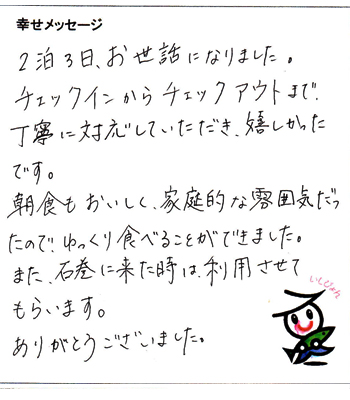 幸せメッセージ
2泊3日、お世話になりました。
チェックインからチェックアウトまで、
丁寧に対応していただき、嬉しかった
です。
朝食もおいしく、家庭的な雰囲気だっ
たので、ゆっくり食べることができました。
また、石巻に来た時は、利用させて
もらいます。
ありがとうございました。
いしぴょん